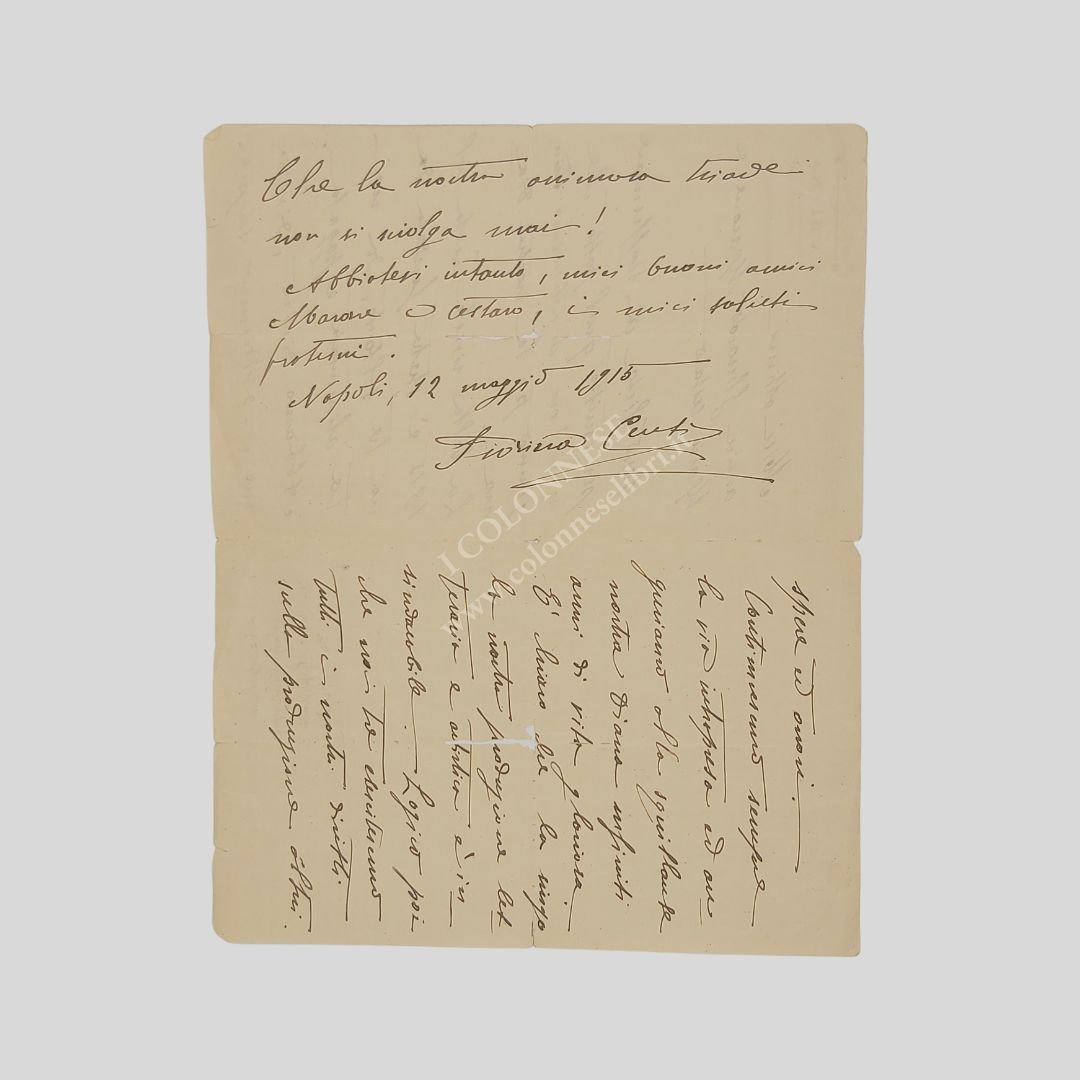 Che la nostra animosa triade
non si sciolga mai!
Abbiatevi intanto, miei buoni amici
Marone e Cestaro, i miei saluti
fraterni.
Napoli, 12 maggio 1915
Fiorina Centi
I COLONNESE
www.colonneselibri.it
spese ed onori.
Continueremo sempre
la via intrapresa ed au
guriamo alla squillante
nostra Diana infiniti
anni di vita gloriosa.
E' chiaro che la singo
la nostra produzione let
teraria e artistica è in
sindacabile. Logico poi
che noi tre eserciteremo
tutti i nostri diritti
sulla produzione altrui.